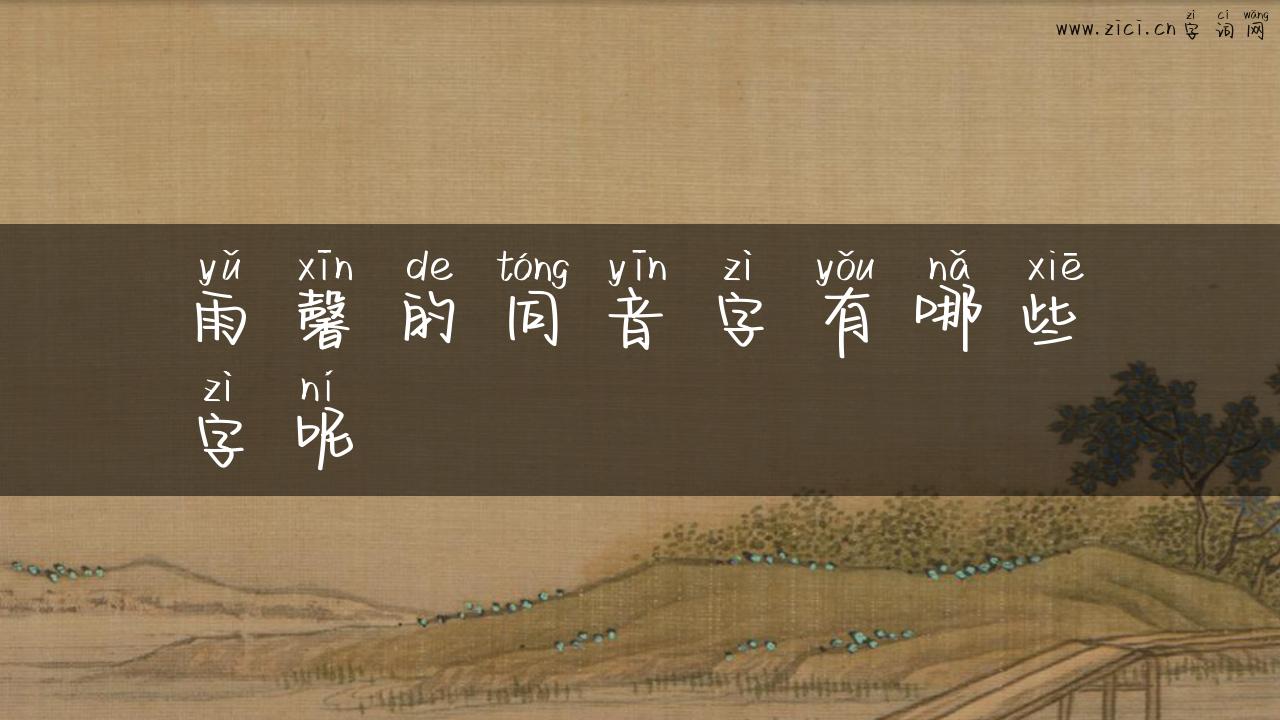 zì cí wǎng
www.zici.cn 字词网
yǔ xīn de tóng yīn zì yǒu nǎ xiē
雨馨的同音字有哪些
zì ní
字呢